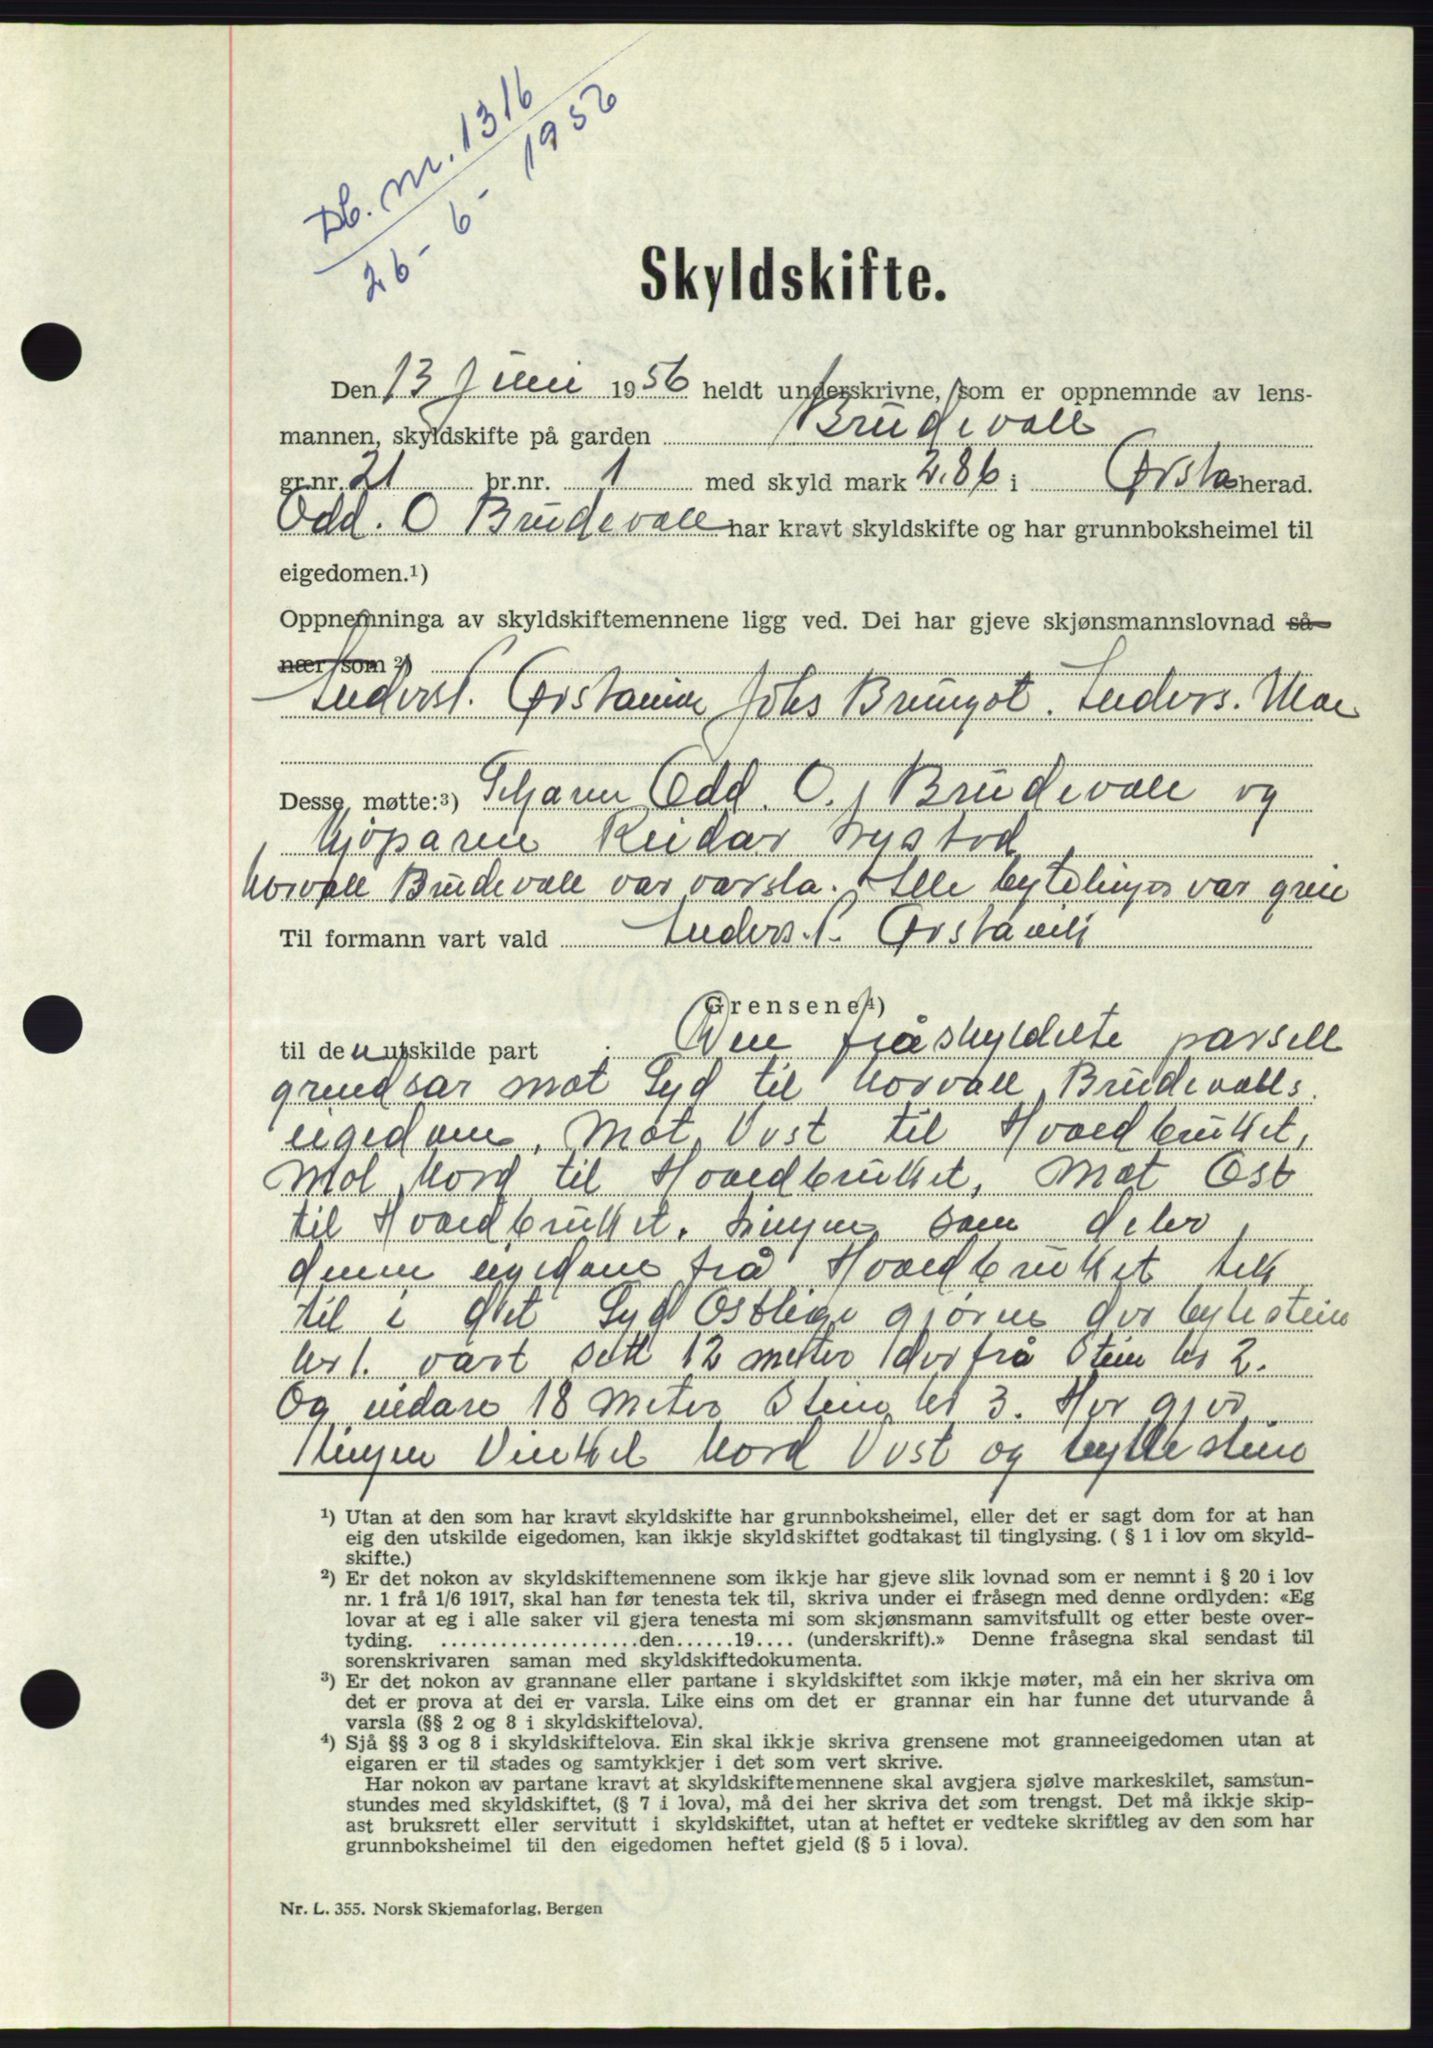 Db. nr. 1316
26-6-1956
Skyldskifte.
Den 13 Juni 1956 heldt underskrivne, som er oppnemnde av lens-
mannen, skyldskifte på garden Brudevoll
gr.nr. 21 br.nr. 1 med skyld mark 2.86 i Ørsta herad.
Odd. O Brudevoll har kravt skyldskifte og har grunnboksheimel til
eigedomen.¹)
Oppnemninga av skyldskiftemennene ligg ved. Dei har gjeve skjønsmannslovnad så
nær som ²)
Anders P. Ørstavik Johs Brungot. Anders. Moe
Desse møtte:³) Odd. O. Brudevoll og
kjøparen Reidar
Norvall Brudevoll var varsla. Alle bytelinjer var greie
Til formann vart vald Anders. P. Ørstavik
Grensene⁴)
til den utskilde part Den fråskyldete parsell
grendsar mot Syd til Norvall Brudevolls
eigedom. Mot Vest til Hovedbruket,
Mot Nord til Hovedbruket, Mot Øst
til Hovedbruket. Linjen som deler
denne eigedom frå Hovedbruket tek
til i det Syd Østlige hjørne der bytestein
Nr 1. vart sett 12 meter derfrå Stein Nr 2.
Og vidare 18 Meter Stein Nr 3. Her gjer
linjen Vinkel Nord Vest og bytestein
¹) Utan at den som har kravt skyldskifte har grunnboksheimel, eller det er sagt dom for at han
eig den utskilde eigedomen, kan ikkje skyldskiftet godtakast til tinglysing. ( § 1 i lov om skyld-
skifte.)
²) Er det nokon av skyldskiftemennene som ikkje har gjeve slik lovnad som er nemnt i § 20 i lov
nr. 1 frå 1/6 1917, skal han før tenesta tek til, skriva under ei fråsegn med denne ordlyden: «Eg
lovar at eg i alle saker vil gjera tenesta mi som skjønsmann samvitsfullt og etter beste over-
tyding. ....................den......19.... (underskrift).» Denne fråsegna skal sendast til
sorenskrivaren saman med skyldskiftedokumenta.
³) Er det nokon av grannane eller partane i skyldskiftet som ikkje møter, må ein her skriva om
det er prova at dei er varsla. Like eins om det er grannar ein har funne det uturvande å
varsla (§§ 2 og 8 i skyldskiftelova).
⁴) Sjå §§ 3 og 8 i skyldskiftelova. Ein skal ikkje skriva grensene mot granneeigedomen utan at
eigaren er til stades og samtykkjer i det som vert skrive.
Har nokon av partane kravt at skyldskiftemennene skal avgjera sjølve markeskilet, samstun-
stundes med skyldskiftet, (§ 7 i lova), må dei her skriva det som trengst. Det må ikkje skip-
ast bruksrett eller servitutt i skyldskiftet, utan at heftet er vedteke skriftleg av den som har
grunnboksheimel til den eigedomen heftet gjeld (§ 5 i lova).
Nr. L. 355. Norsk Skjemaforlag, Bergen